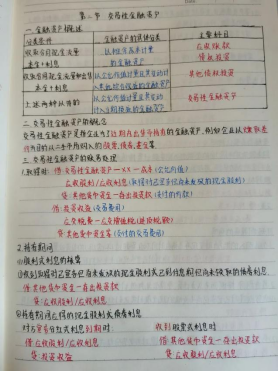 第二节 交易性金融资产
一、金融资产概述
分类条件 金融资产的具体分类 主要科目
收取合同现金流量 以摊余成本计量 应收账款
本金+利息 的金融资产 债权投资
收取合同现金流量和出售 以公允价值计量且其变动计 其他债权投资
本金+利息 入其他综合收益的金融资产
上述两种以外的 以公允价值计量且其变动 交易性金融资产
计入当期损益的金融资产
二、交易性金融资产的概念
交易性金融资产是指企业为了近期内出售而持有的金融资产,例如企业以赚取差
价为目的从二手市场购入的股票、债券、基金等
三、交易性金融资产的账务处理
1.取得时: 借:交易性金融资产—XX—成本(公允价值)
应收股利/应收利息
贷:其他货币资金
借:投资收益(交易费用)
应交税费—应交增值税(进项税额)
贷:其他货币资金等(支付的交易费用)
2.持有期间
①股利或利息的核算
借:其他货币资金—存出投资款
贷:应收股利/应收利息
对方宣告分红或利息到期时: 收到股票或利息时
借:应收股利/应收利息 借:其他货币资金—存出投资款
贷:投资收益 贷:应收股利/应收利息